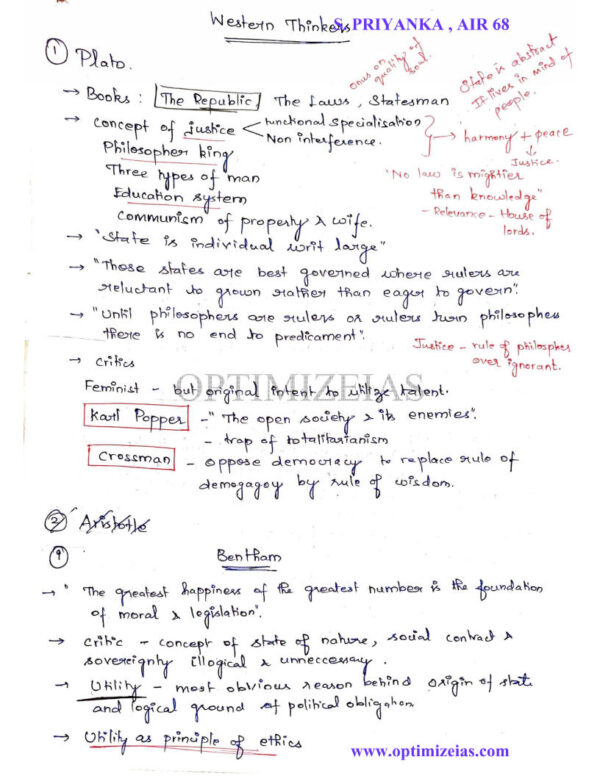 Western Thinkers
S. PRIYANKA , AIR 68
① Plato.
onus on
quality of
soul.
State is abstract
It lives in mind of
people.
→ Books : The Republic The Laws , Statesman
→ Concept of justice < Functional Specialisation
Non interference.
→ harmony + peace
↓
Justice.
Philosopher king
Three types of man
Education system
Communism of property & wife.
"No law is mightier
than knowledge"
- Relevance - House of
lords.
→ "State is individual writ large"
→ "Those states are best governed where rulers are
reluctant to grown rather than eager to govern".
→ "Until philosophers are rulers or rulers turn philosophers
there is no end to predicament".
Justice - rule of philosopher
over ignorant.
→ Critics
Feminist - but original intent to utilize talent.
OPTIMIZEIAS
Karl Popper - "The open society & its enemies".
- trap of totalitarianism
Crossman - oppose democracy to replace rule of
demogagoy by rule of wisdom.
② Aristotle
⑨ Bentham
→ "The greatest happiness of the greatest number is the foundation
of moral & legislation".
→ Critic - concept of state of nature, social contract &
sovereignty illogical & unneccessary.
→ Utility - most obvious reason behind origin of state
and logical ground of political obligation
→ Utility as principle of ethics
www.optimizeias.com